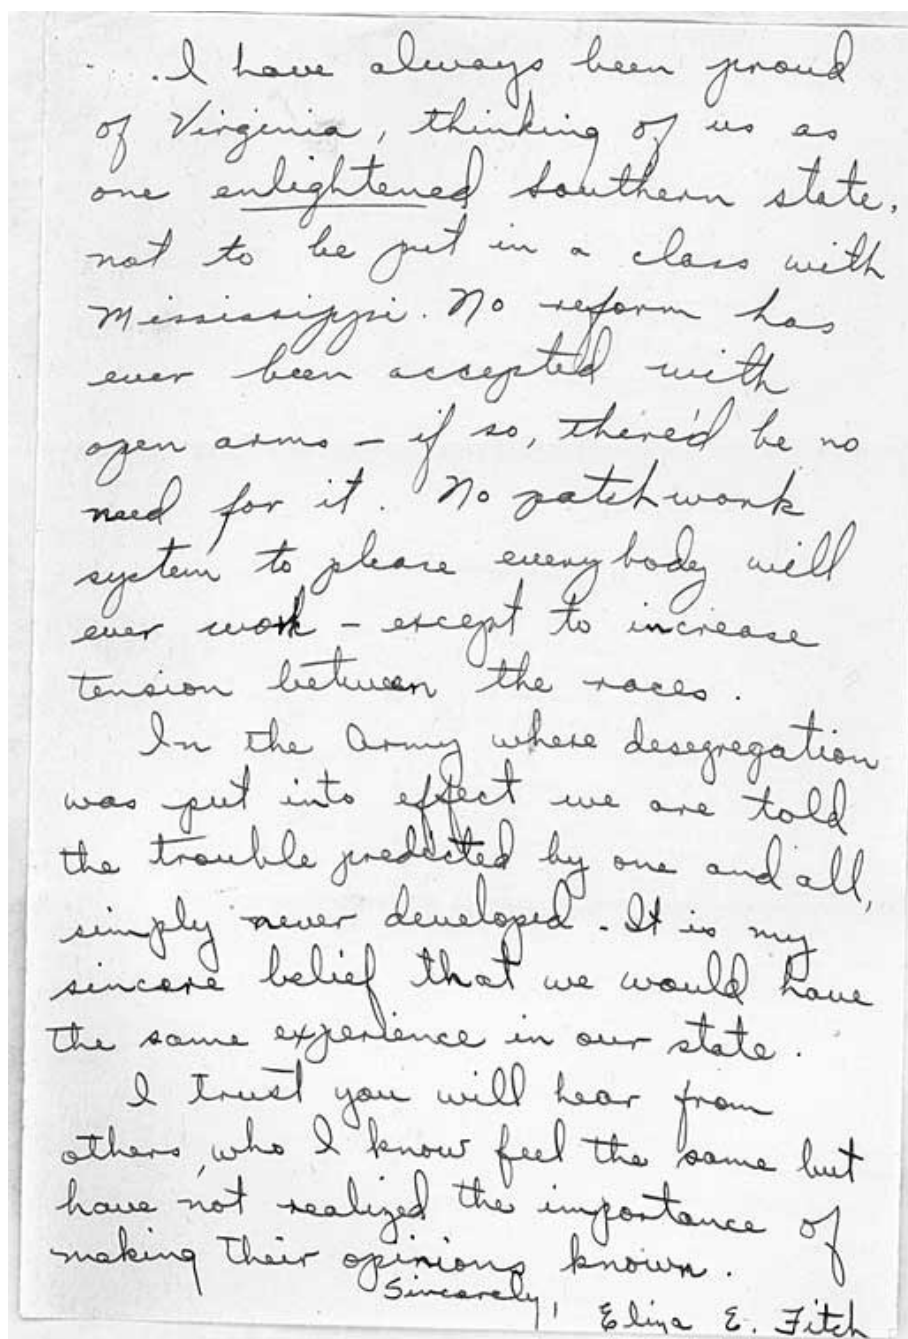 . . . . I have always been proud
of Virginia, thinking of us as
one enlightened southern state,
not to be put in a class with
Mississippi. No reform has
ever been accepted with
open arms – if so, there'd be no
need for it. No patchwork
system to please everybody will
ever work – except to increase
tension between the races.
In the Army where desegregation
was put into effect we are told
the trouble predicted by one and all,
simply never developed. It is my
sincere belief that we would have
the same experience in our state.
I trust you will hear from
others, who I know feel the same but
have not realized the importance of
making their opinions known.
Sincerely,
Eliza E. Fitch